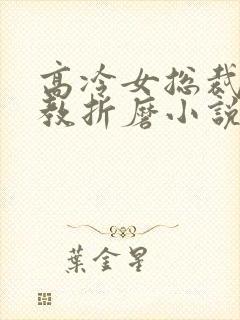 高冷女总裁
教折磨小說
葉金星